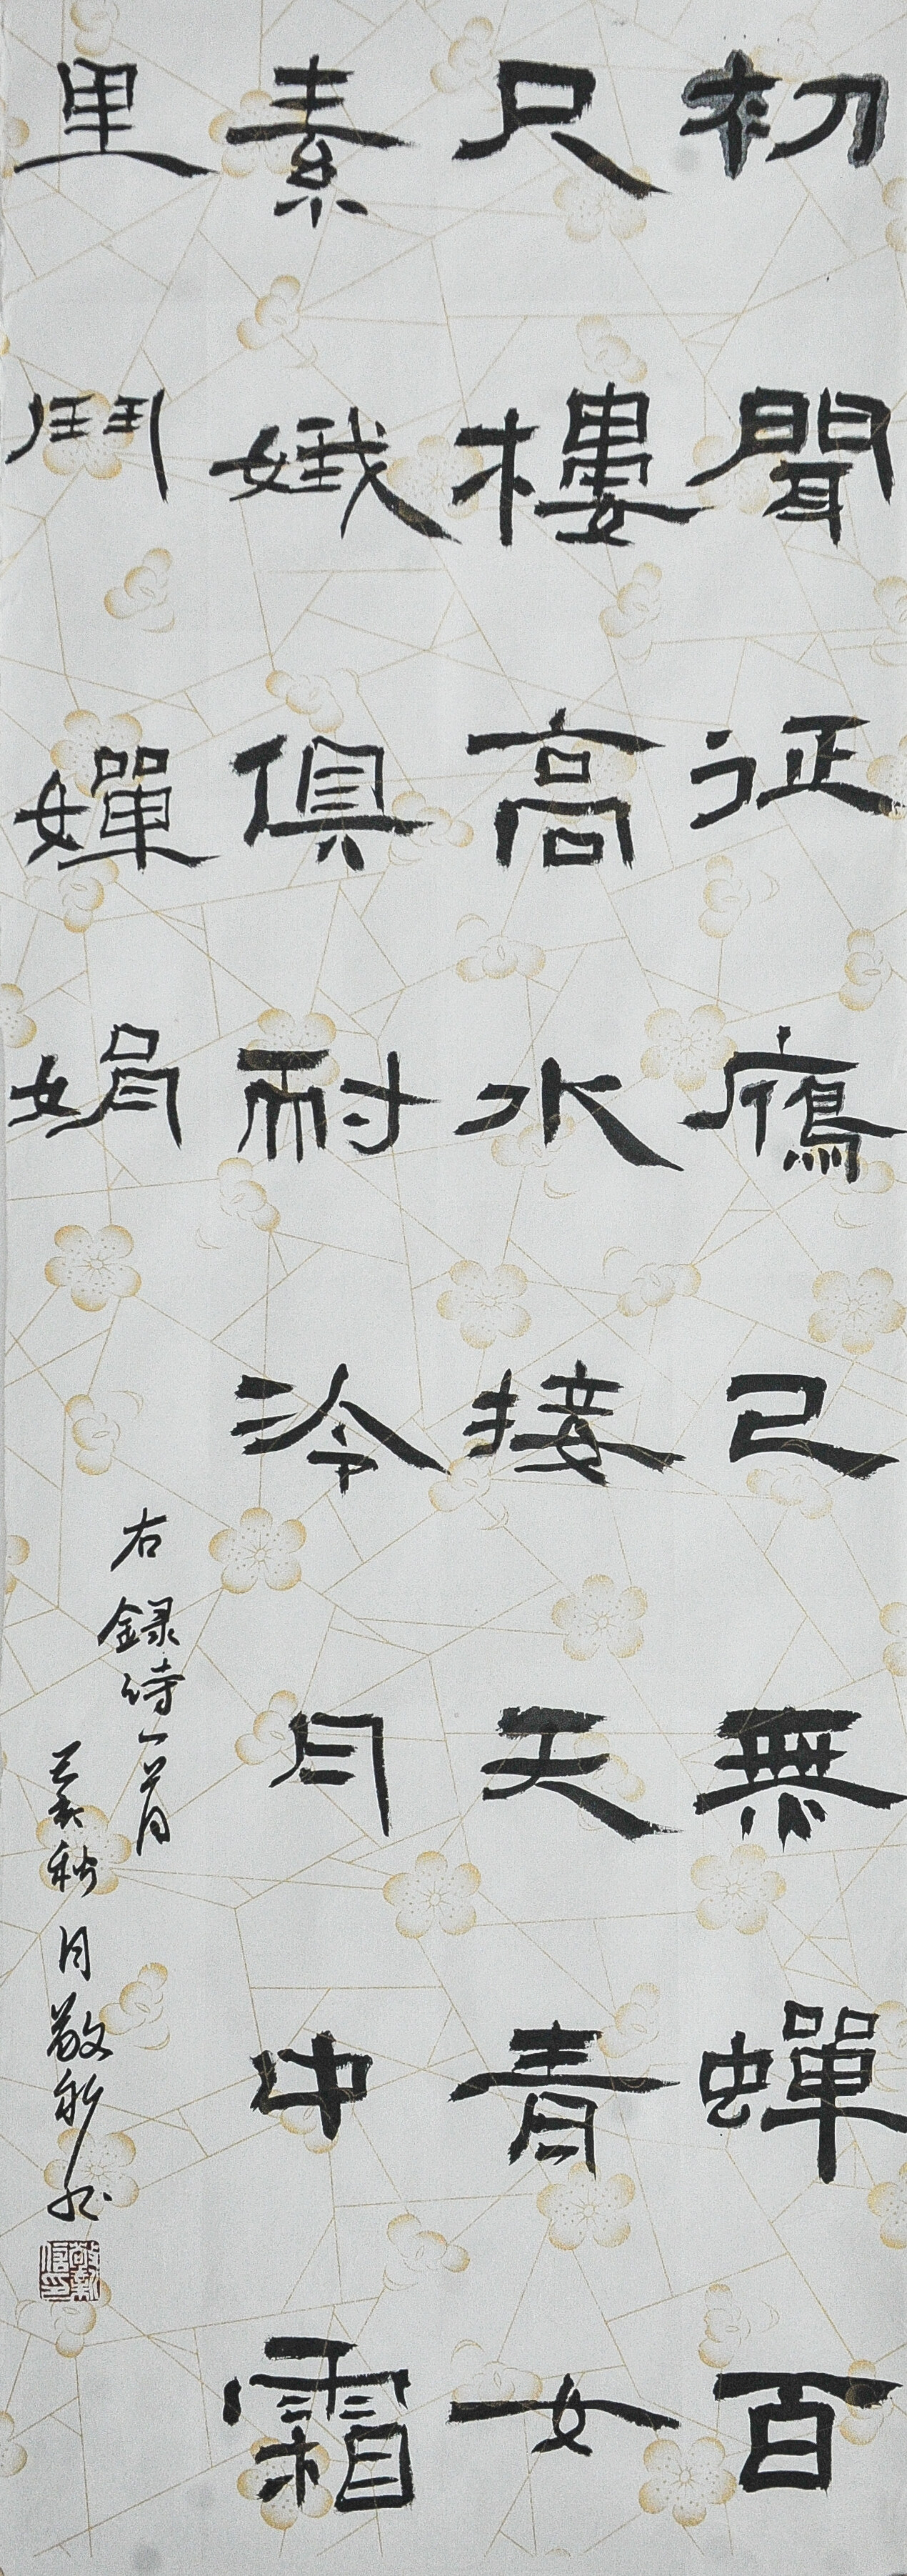 初聞征鴈已無蟬百
尺樓高水接天青女
素娥俱耐冷月中霜
里鬥嬋娟
右錄詩一首
秋月敬新书